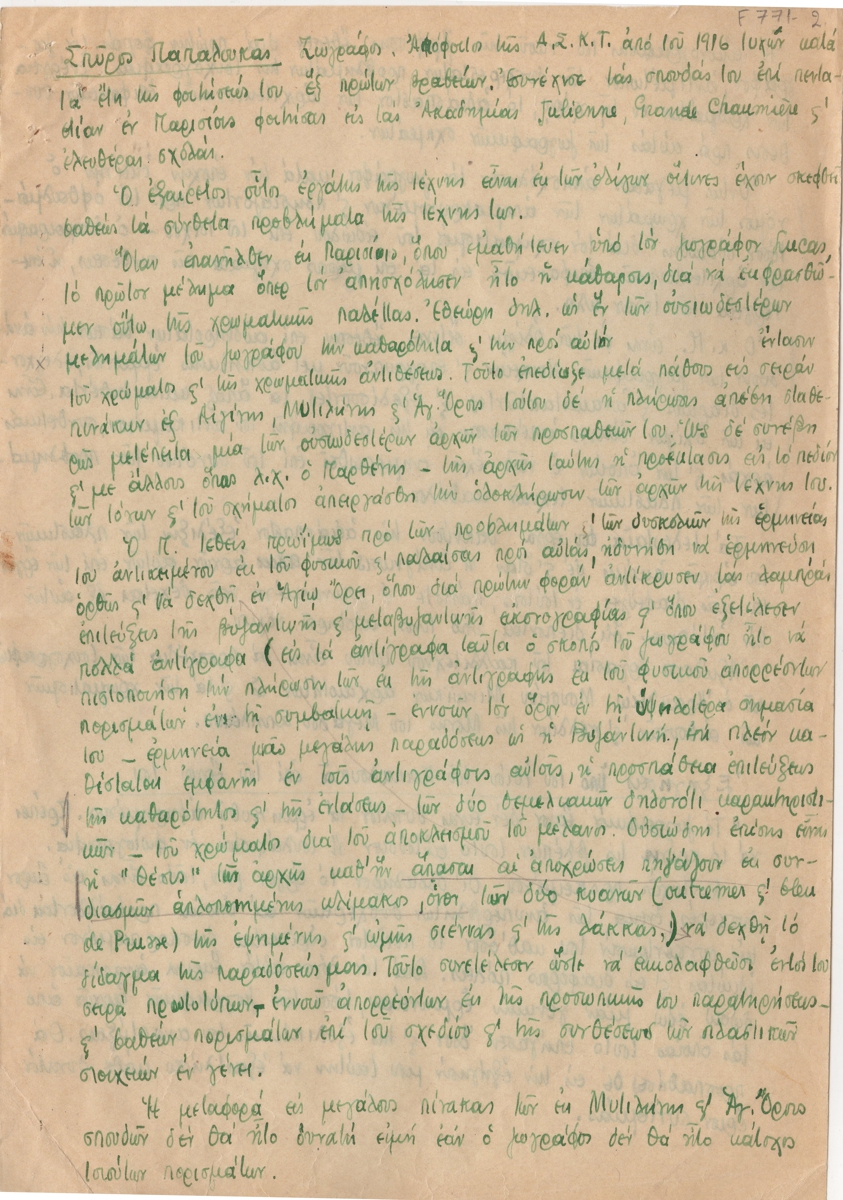 F 771- 2
Σπῦρος Παπαλουκᾶς Ζωγράφος. Ἀπόφοιτος τῆς Α.Σ.Κ.Τ. ἀπό τοῦ 1916 τυχών κατά
τά ἔτη τῆς φοιτήσεώς του ἕξ πρώτων βραβείων. Ἐσυνέχισε τάς σπουδάς του ἐπί πεντα-
ετίαν ἐν Παρισίοις φοιτήσας εἰς τας Ἀκαδημίας Julienne, Grande Chaumière ϛ'
ἐλευθέρας σχολάς.
Ὁ ἐξαίρετος οὗτος ἐργάτης τῆς τέχνης εἶναι ἐκ τῶν ὀλίγων οἵτινες ἔχουν σκεφθῆ
βαθέως τά σύνθετα προβλήματα τῆς τέχνης των.
Ὅταν ἐπανῆλθεν ἐκ Παρισίων, ὅπου ἐμαθήτευεν ὑπό τόν ζωγράφον Lucas,
τό πρῶτον μέλημα ὅπερ τόν ἀπησχόλησεν ἦτο ἡ κάθαρσις, διά νά ἐκφρασθῶ-
μεν οὕτω, τῆς χρωματικῆς παλέττας. Ἐθεώρη δηλ. ὡς ἕν τῶν οὐσιωδεστέρων
μελημάτων τοῦ ζωγράφου τήν καθαρότητα ϛ' τήν πρός αὐτόν ἔντασιν
τοῦ χρώματος ϛ' τῆς χρωματικῆς ἀντιθέσεως. Τοῦτο ἐπεδίωξε μετά πάθους εἰς σειράν
πινάκων ἐξ Αἰγίνης, Μυτιλήνης ϛ' Ἁγ. Ὄρους τούτου δέ ἡ πλήρωσις ἀπέβη σταθε-
ρῶς μετέπειτα μία τῶν οὐσιωδεστέρων ἀρχῶν τῶν προσπαθειῶν του. Ὡς δέ συνέβη
ϛ' με ἄλλους ὅπως λ.χ. ὁ Παρθένης – τῆς ἀρχῆς ταύτης ἡ προέκτασις εἰς τό πεδίον
τῶν τόνων ϛ' τοῦ σχήματος ἀπειργάσθη τήν ὁλοκλήρωσιν τῶν ἀρχῶν τῆς τέχνης του.
Ὁ Π. τεθείς πρωίμως πρό τῶν προβλημάτων ϛ' τῶν δυσκολιῶν τῆς ἑρμηνείας
τοῦ ἀντικειμένου ἐκ τοῦ φυσικοῦ ϛ' παλαίσας πρός αὐτάς, ἠδυνήθη νά ἑρμηνεύση
ὀρθῶς ϛ' νά δεχθῆ ἐν Ἁγίῳ Ὄρει, ὅπου διά πρώτην φοράν ἀντίκρυσεν τάς λαμπράς
ἐπιτεύξεις τῆς Βυζαντινῆς ϛ' μεταβυζαντινῆς εἰκονογραφίας ϛ' ὅπου ἐξετέλεσεν
πολλά ἀντίγραφα (εἰς τά ἀντίγραφα ταῦτα ὁ σκοπός τοῦ ζωγράφου ἦτο νά
πιστοποιήση τήν πλήρωσιν τῶν ἐκ τῆς ἀντιγραφῆς ἐκ τοῦ φυσικοῦ ἀπορρεόντων
πορισμάτων ἐν τῇ συμβατικῇ – ἐννοῶν τόν ὅρον ἐν τῇ ὑψηλοτέρα σημασία
του – ἑρμηνεία μιᾶς μεγάλης παραδόσεως ὡς ἡ Βυζαντινή, ἔτι πλέον κα-
θίσταται ἐμφανής ἐν τοῖς ἀντιγράφοις αὐτοῖς, ἡ προσπάθεια ἐπιτεύξεως
τῆς καθαρότητος ϛ' τῆς ἐντάσεως – τῶν δύο θεμελιακῶν δηλονότι χαρακτηριστι-
κῶν – τοῦ χρώματος διά τοῦ ἀποκλεισμοῦ τοῦ μέλανος. Οὐσιώδης ἐπίσης εἶναι
ἡ "θέσις" τῆς ἀρχῆς καθ' ἥν ἅπασαι αἱ ἀποχρώσεις πηγάζουν ἐκ συν-
διασμῶν ἁπλοποιημένης κλίμακος, ἤτοι τῶν δύο κυανῶν (outremer ϛ' bleu
de Prusse) τῆς ἐψημένης ϛ' ὠμῆς σιέννας ϛ' τῆς λάκκας.) νά δεχθῆ τό
δίδαγμα τῆς παραδόσεώς μας. Τοῦτο συνετέλεσεν ὥστε νά ἐκκολαφθῶσι ἐντός του
σειρά πρωτοτύπων – ἐννοῶ ἀπορρεόντων ἐκ τῆς προσωπικῆς του παρατηρήσεως –
ϛ' βαθέων πορισμάτων ἐπί τοῦ σχεδίου ϛ' τῆς συνθέσεως τῶν πλαστικῶν
στοιχείων ἐν γένει.
Ἡ μεταφορά εἰς μεγάλους πίνακας τῶν ἐκ Μυτιλήνης ϛ' Ἁγ. Ὄρους
σπουδῶν δέν θά ἦτο δυνατή εἰμή ἐάν ὁ ζωγράφος δέν θά ἦτο κάτοχος
τοιούτων πορισμάτων.